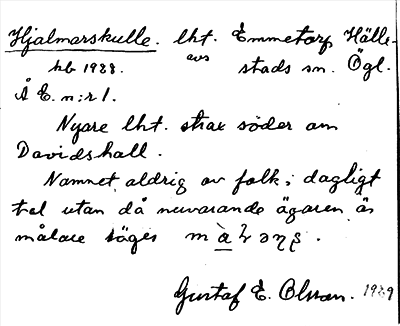 Hjalmarskulle. lht. Emmetorp Hälle-
hb 1928. avs stads sn. Ögl.
Å E. n:r 1.
Nyare lht. strax söder om
Davidshall.
Namnet aldrig av folk i dagligt
tal utan då nuvarande ägaren är
målare säges
Gustaf E. Olsson. 1929